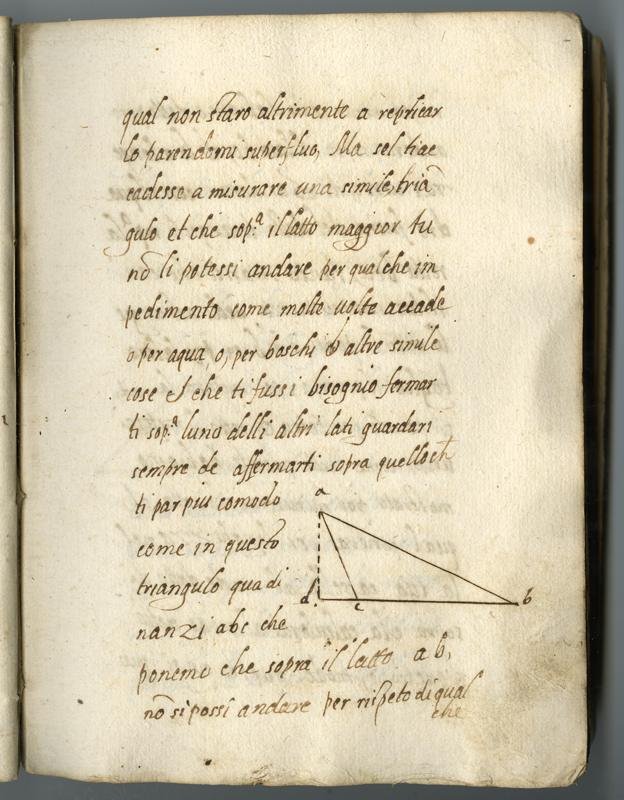 qual non staro altrimente a replicar
lo parendomi superfluo, Ma sel tiac
cadesse a misurare una simile, triā
gulo et che sop.ª il latto maggior tu
nō li potessi andare per qualche im
pedimento come molte volte accade
o per aqua, o, per boschi & altre simile
cose et che ti fussi bisognio fermar
ti sop.ª luno delli altri lati guardari
sempre de affermarti sopra quello ch
ti par piu comodo
come in questo
triangulo qua di
nanzi abc che
poneme che sopra il latto a b,
nō si possi andare per rispeto di qual
che
a
d.
c
b